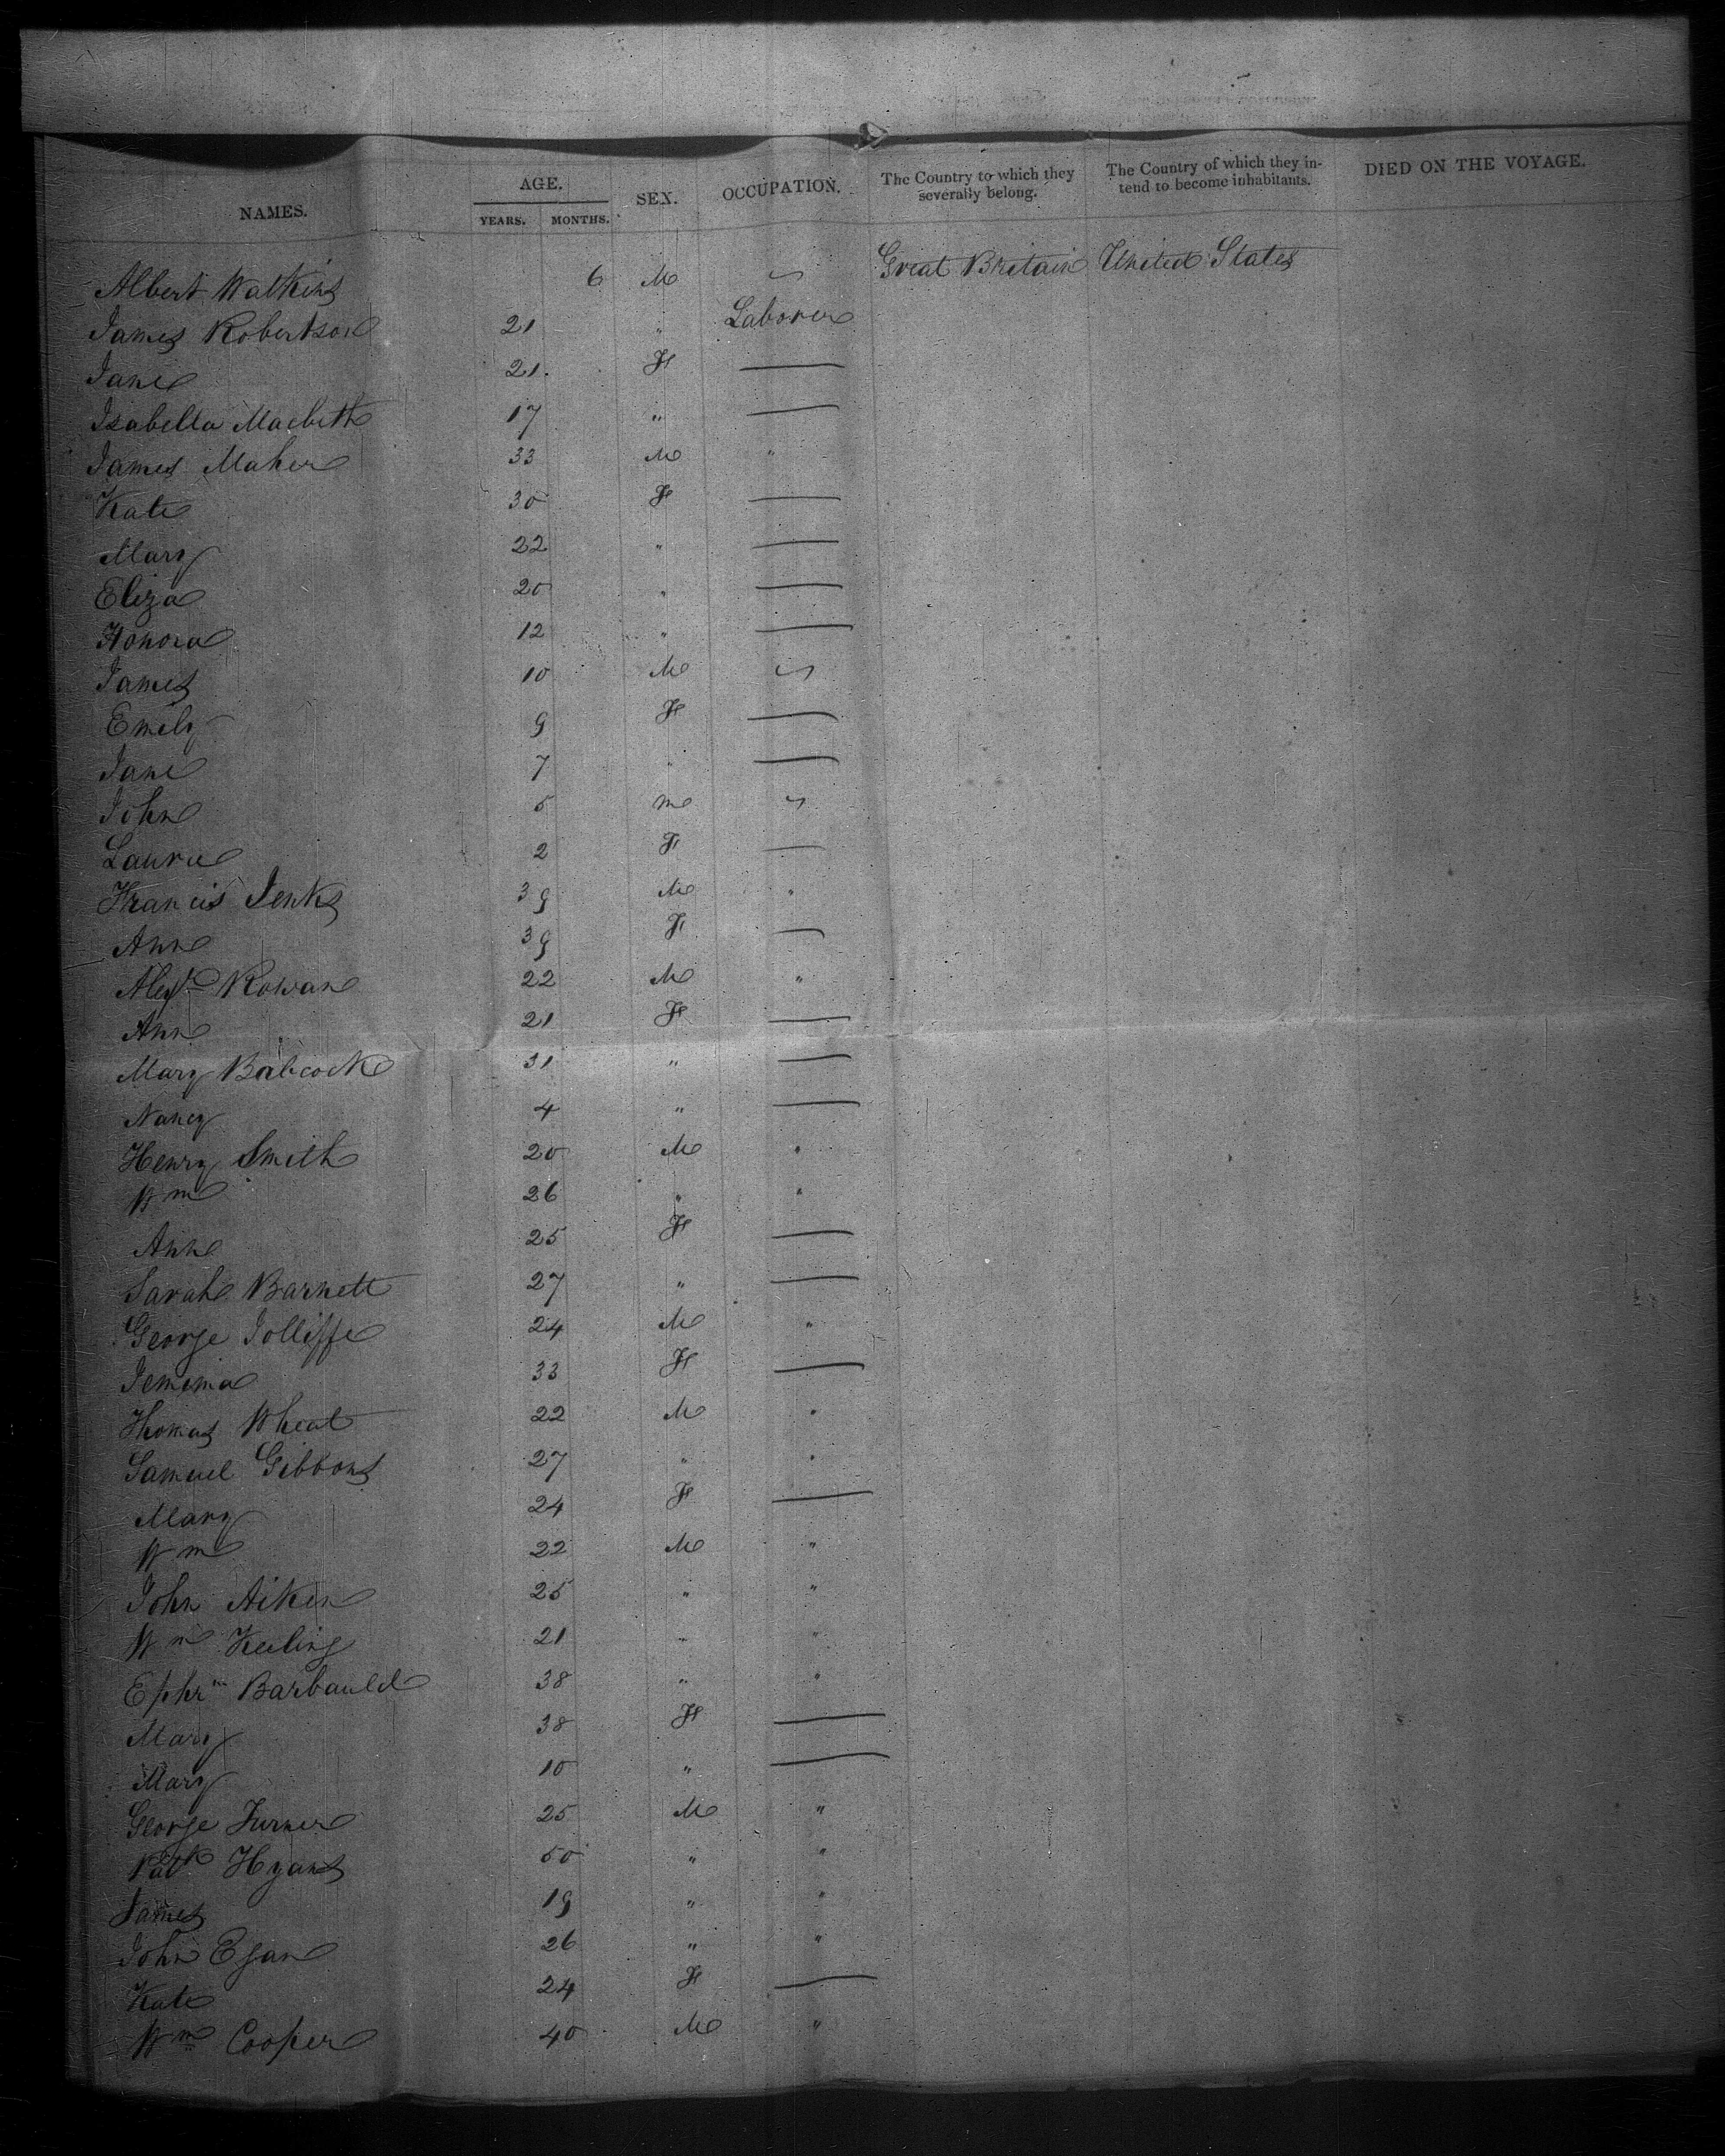 NAMES. AGE. YEARS. MONTHS. SEX. OCCUPATION. The Country to which they severally belong. The Country of which they intend to become inhabitants. DIED ON THE VOYAGE.
Albert Watkins 6 M ~ Great Britain United States
James Robertson 21 " Laborer
Jane 21 F —
Isabella Macbeth 17 " —
James Maher 33 M "
Kate 30 F —
Mary 22 " —
Eliza 20 " —
Honora 12 " —
James 10 M ~
Emily 9 F —
Jane 7 " —
John 5 M ~
Laura 2 F —
Francis Jenks 39 M "
Ann 39 F —
Alexr Rowan 22 M "
Ann 21 F —
Mary Babcock 31 " —
Nancy 4 " —
Henry Smith 20 M "
Wm 26 " "
Ann 25 F —
Sarah Barnett 27 " —
George Jolliffe 24 M "
Jemima 33 F —
Thomas Wheat 22 M "
Samuel Gibbons 27 " "
Mary 24 F —
Wm 22 M "
John Aiken 25 " "
Wm Keeling 21 " "
Ephrm Barbauld 38 " "
Mary 38 F —
Mary 10 " —
George Turner 25 M "
Patk Hyans 50 " "
James 19 " "
John Egan 26 " "
Kate 24 F —
Wm Cooper 40 M "